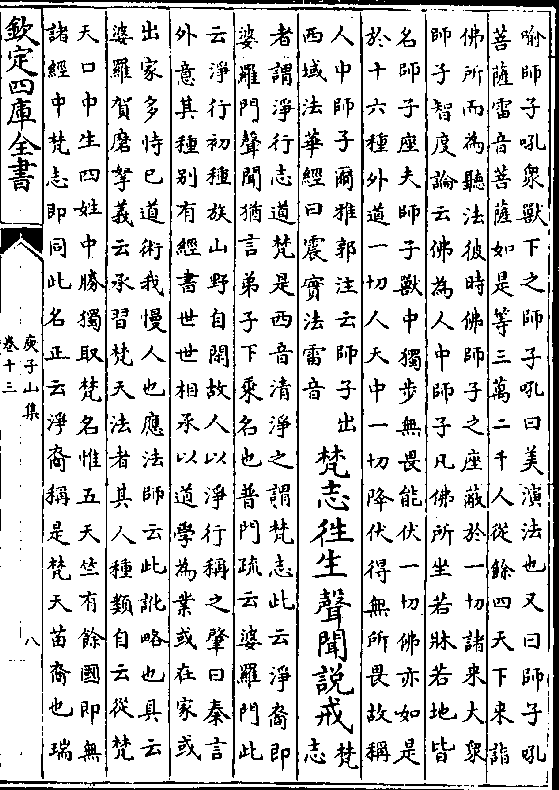 喻師子吼衆獸下之師子吼曰美演法也又曰師子吼
菩薩雷音菩薩如是等三萬二千人從餘四天下来詣
佛所而為聽法彼時佛師子之座蔽於一切諸来大衆
師子智度論云佛為人中師子凡佛所坐若牀若地皆
名師子座夫師子獸中獨步無畏能伏一切佛亦如是
於十六種外道一切人天中一切降伏得無所畏故稱
人中師子爾雅郭注云師子出
西域法華經曰震實法雷音
梵志徃生聲聞説戒
梵
志
者謂淨行志道梵是西音清淨之謂梵志此云淨裔即
婆羅門聲聞猶言弟子下乘名也普門疏云婆羅門此
云淨行初種族山野自閑故人以淨行稱之肇曰秦言
外意其種别有經書世世相承以道學為業或在家或
出家多恃已道術我慢人也應法師云此訛略也具云
婆羅賀磨拏義云承習梵天法者其人種類自云從梵
天口中生四姓中勝獨取梵名惟五天竺有餘國即無
諸經中梵志即同此名正云淨裔稱是梵天苗裔也瑞
欽定四庫全書
庾子山集
卷十三
八